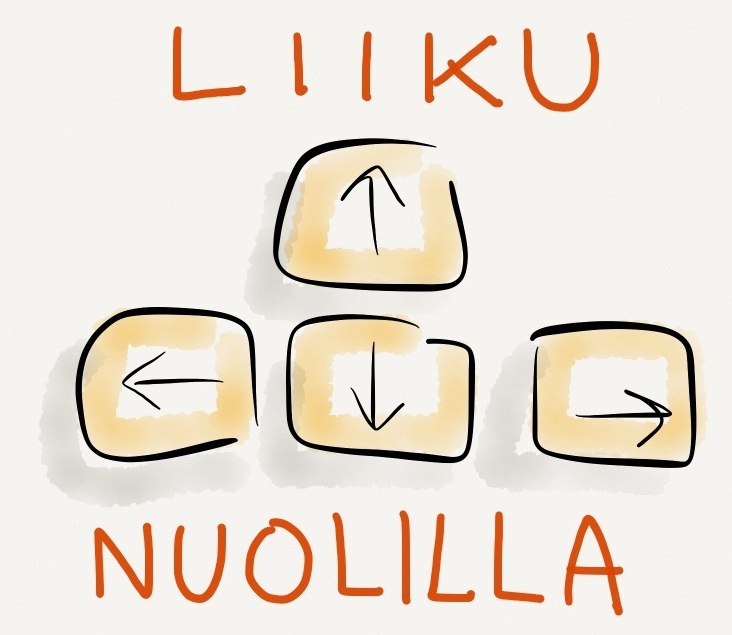 LIIKU
NUOLILLA